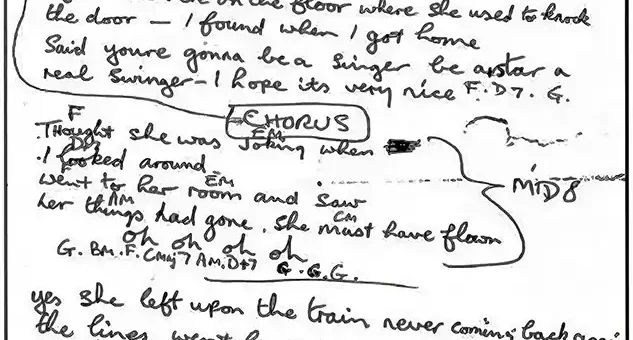 on the floor where she used to knock
the door – I found when I got home
Said youre gonna be a singer be a star a
real swinger – I hope its very nice F. D7. G.
CHORUS
F
Thought she was joking when
EM
I looked around
went to her room and saw
EM
AM
her things had gone. she must have flown
CM
MID 8
oh oh oh oh
G. BM. F. CMaj7 AM. D+7 G. G. G.
yes she left upon the train never coming back
the lines went